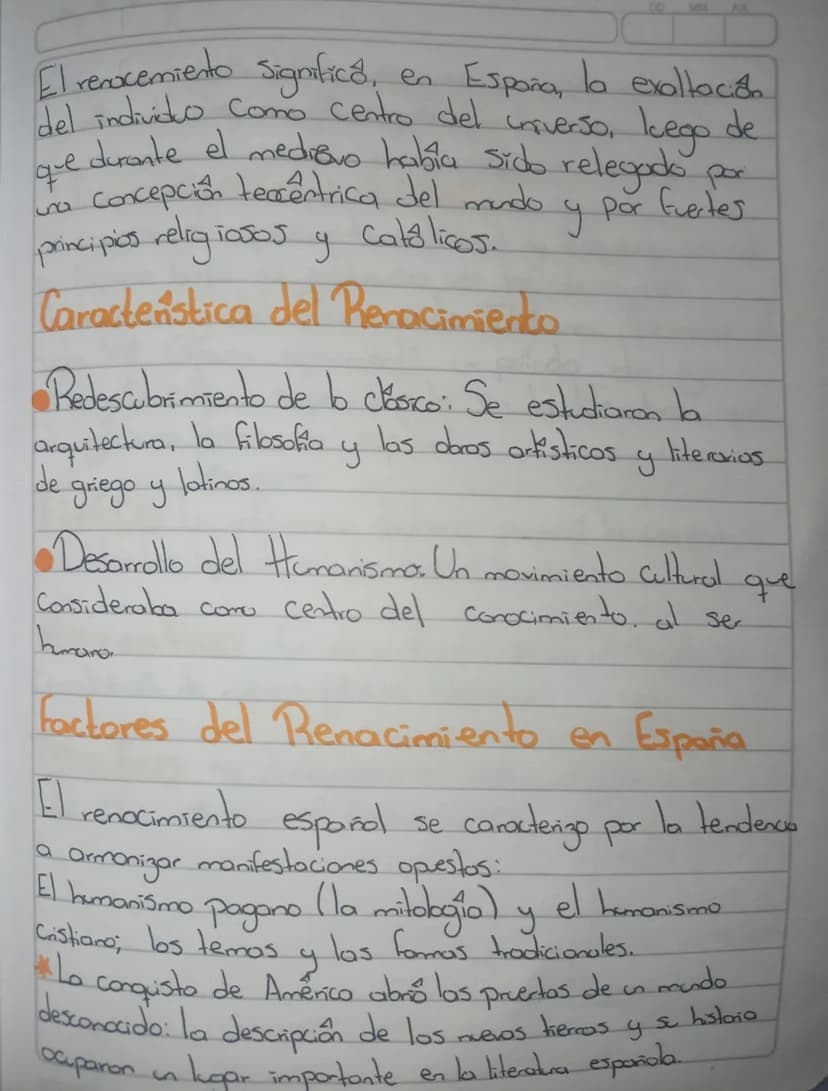 El renacemiento significó, en España, la exaltación
del individuo como centro del universo, luego de
que durante el medievo había sido relegado por
una concepción teocéntrica del mundo y por fuertes
principios religiosos y católicos.
Característica del Renacimiento
Redescubrimiento de lo clásico: Se estudiaron la
arquitectura, la filosofía y las obras artísticas y literarias
de griego y latinos.
Desarrollo del Humanismo: Un movimiento cultural que
Consideraba como centro del conocimiento, al ser
humano.
Factores del Renacimiento en España
El renacimiento español se caracterizo por la tendencia
a armonizar manifestaciones opuestas:
El humanismo pagano (la mitología) y el humanismo
Cristiano; los temas y las formas tradicionales.
* La conquista de América abrió las puertas de un mundo
desconocido: la descripción de las nuevas tierras y su historia
ocuparon un lugar importante en la literatura española.